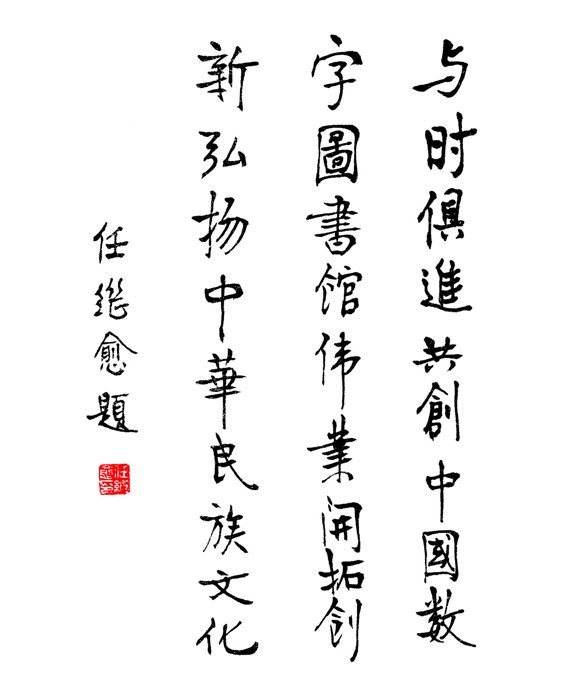 与时俱進共創中國数
字圖書館伟業開拓创
新弘扬中華民族文化
任继愈題